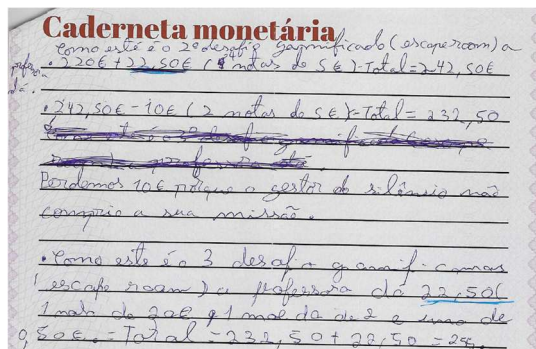 Caderneta monetária
Como este é o 2º desafio gamnificado (escape room) a
professora dá.
• 220€ + 22,50€ ( notas de 5€)-Total=242,50€
• 242,50€ - 10€ (2 notas de 5€)-Total= 232,50
Perdemos 10€ porque o gestor do silêncio não
comprio a sua missão.
• Como este é o 3 desafio gamifi-
(escape room) a professora dá 22,50€
1 nota de 20€ 1 moeda de 2 e uma de
0,50€. = Total = 232,50 + 22,50 =